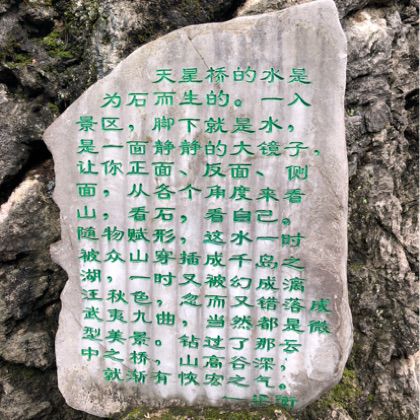 天星桥的水是
为石而生的。一入
景区，脚下就是水，
是一面静静的大镜子，
让你正面、反面、侧
面，从各个角度来看
山，看石，看自己。
随物赋形，这水一时
被众山穿插成千岛之
湖，一时又被幻成漓
江秋色，忽而又错落成
武夷九曲，当然都是微
型美景。钻过了那云
中之桥，山高谷深，
就渐有恢宏之气。
——梁衡